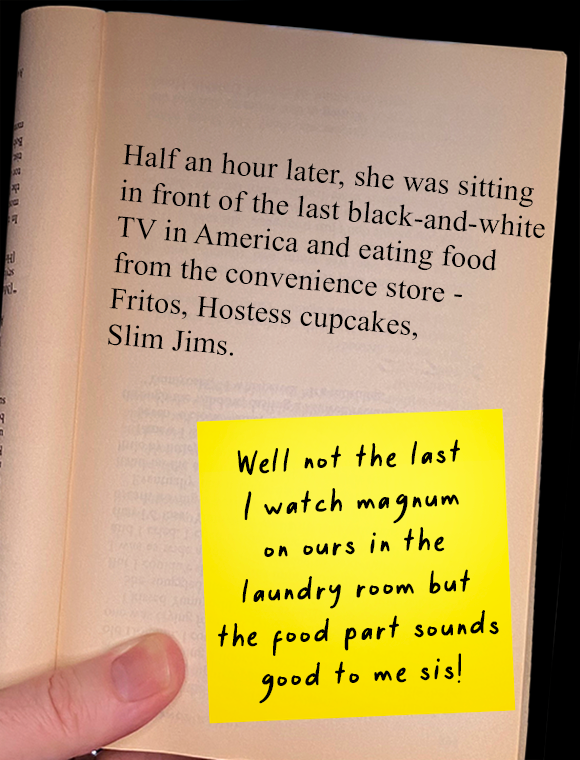 Half an hour later, she was sitting
in front of the last black-and-white
TV in America and eating food
from the convenience store -
Fritos, Hostess cupcakes,
Slim Jims.
Well not the last
I watch magnum
on ours in the
laundry room but
the food part sounds
good to me sis!